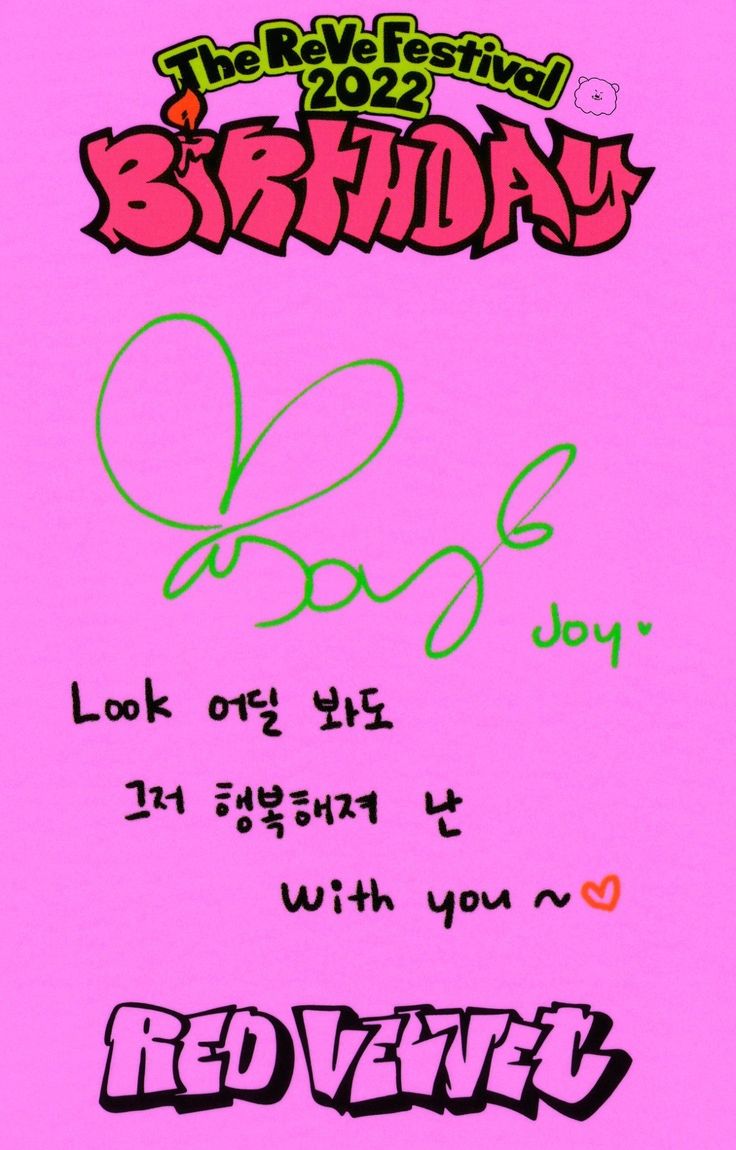 The ReVe Festival
2022
BiRTHDAY
Joy
Joy
Look 어딜 봐도
그저 행복해져 난
with you ~ ♡
RED VELVET